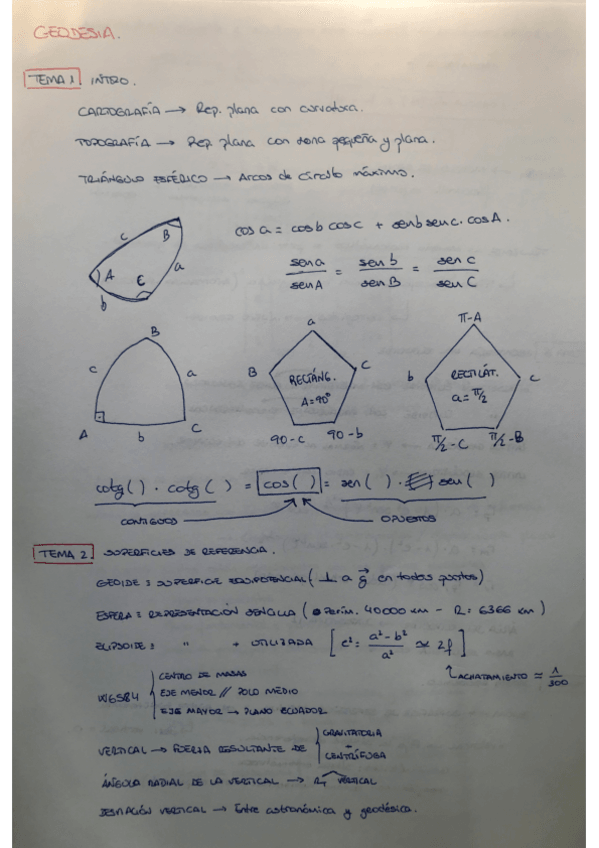 GEODESIA.
TEMA 1 INTRO.
CARTOGRAFÍA → Rep. plana con curvatura.
TOPOGRAFÍA → Rep. plana con zona pequeña y plana.
TRIÁNGULO ESFÉRICO → Arcos de círculo máximo.
c B
A C a
b
cos a = cos b cos c + sen b sen c. cos A.
sen a / sen A = sen b / sen B = sen c / sen C
B
c a
A b C
a
B C
RECTÁNG.
A=90º
90-c 90-b
π-A
b c
RECTILÁT.
a = π/2
π/2-C π/2-B
cotg ( ) · cotg ( ) = cos ( ) = sen ( ) · sen ( )
CONTIGUOS OPUESTOS
TEMA 2 SUPERFICIES DE REFERENCIA.
GEOIDE : SUPERFICIE EQUIPOTENCIAL (⊥ a g⃗ en todos puntos)
ESFERA : REPRESENTACIÓN SENCILLA ( Perím. 40000 km - R: 6366 km )
ELIPSOIDE : " + UTILIZADA [ e²: a²-b² / a² ≃ 2f ]
ACHATAMIENTO ≃ 1/300
WGS84
CENTRO DE MASAS
EJE MENOR // POLO MEDIO
EJE MAYOR → PLANO ECUADOR
VERTICAL → FUERZA RESULTANTE DE
GRAVITATORIA
CENTRÍFUGA
ÁNGULO RADIAL DE LA VERTICAL → VERTICAL
DESVIACIÓN VERTICAL → Entre astronómica y geodésica.